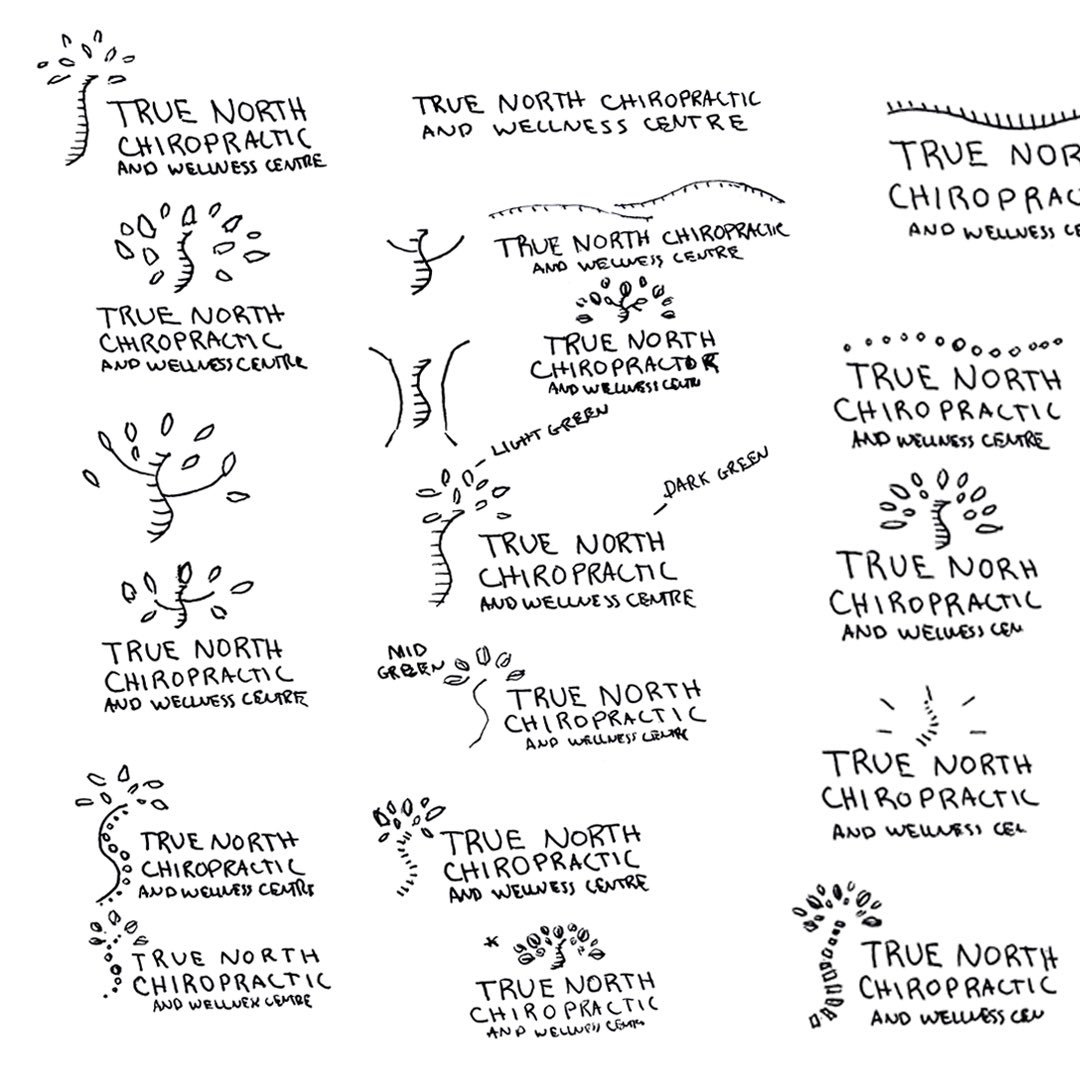 TRUE NORTH
CHIROPRACTIC
AND WELLNESS CENTRE
TRUE NORTH
CHIROPRACTIC
AND WELLNESS CENTRE
TRUE NORTH
CHIROPRACTIC
AND WELLNESS CENTRE
TRUE NORTH
CHIROPRACTIC
AND WELLNESS CENTRE
TRUE NORTH
CHIROPRACTIC
AND WELLNESS CENTRE
TRUE NORTH CHIROPRACTIC
AND WELLNESS CENTRE
TRUE NORTH CHIROPRACTIC
AND WELLNESS CENTRE
TRUE NORTH
CHIROPRACTOR
AND WELLNESS CENTR
LIGHT GREEN
DARK GREEN
TRUE NORTH
CHIROPRACTIC
AND WELLNESS CENTRE
MID
GREEN
TRUE NORTH
CHIROPRACTIC
AND WELLNESS CENTRE
TRUE NORTH
CHIROPRACTIC
AND WELLNESS CENTRE
TRUE NORTH
CHIROPRACTIC
AND WELLNESS CENTRE
TRUE NOR
CHIROPRAC
AND WELLNESS CE
TRUE NORTH
CHIROPRACTIC
AND WELLNESS CENTRE
TRUE NORH
CHIROPRACTIC
AND WELLNESS CEN
TRUE NORTH
CHIROPRACTIC
AND WELLNESS CEL
TRUE NORTH
CHIROPRACTIC
AND WELLNESS CEN